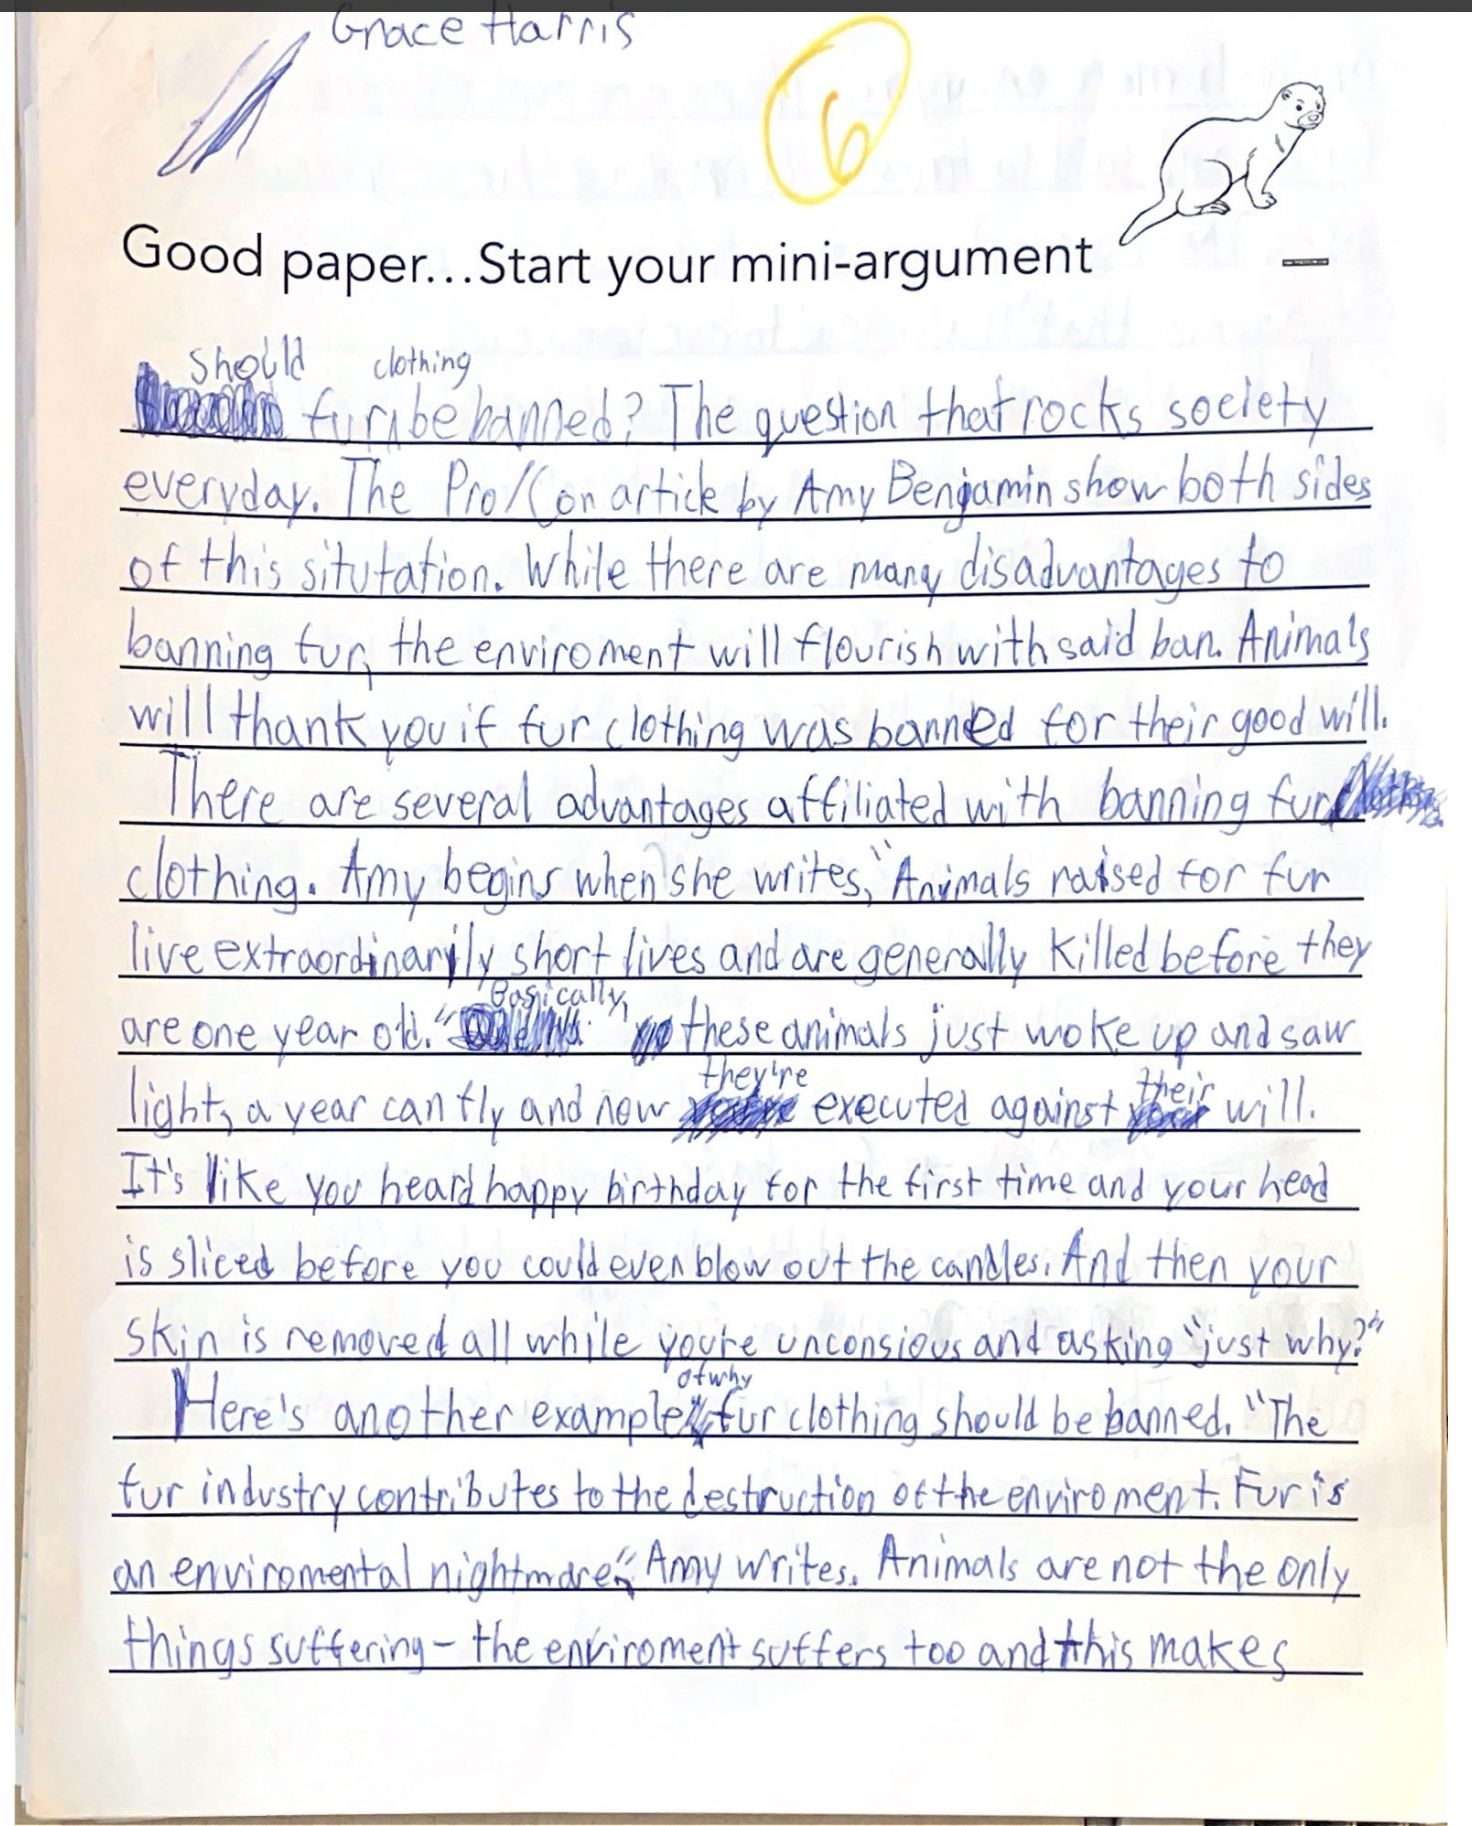 Grace Harris
6
Good paper...Start your mini-argument
should clothing
fur be banned? The question that rocks society
everyday. The Pro/Con article by Amy Benjamin show both sides
of this situtation. While there are many disadvantages to
banning fur, the enviroment will flourish with said ban. Animals
will thank you if fur clothing was banned for their good will.
There are several advantages affiliated with banning fur
clothing. Amy begins when she writes, "Animals raised for fur
live extraordinarily short lives and are generally killed before they
Basically,
are one year old." these animals just woke up and saw
they're their
light, a year can fly and now executed against will.
It's like you heard happy birthday for the first time and your head
is sliced before you could even blow out the candles. And then your
skin is removed all while you're unconsious and asking "just why?"
of why
Here's another example fur clothing should be banned. "The
fur industry contributes to the destruction of the enviroment. Fur is
an enviromental nightmare," Amy writes. Animals are not the only
things suffering - the enviroment suffers too and this makes